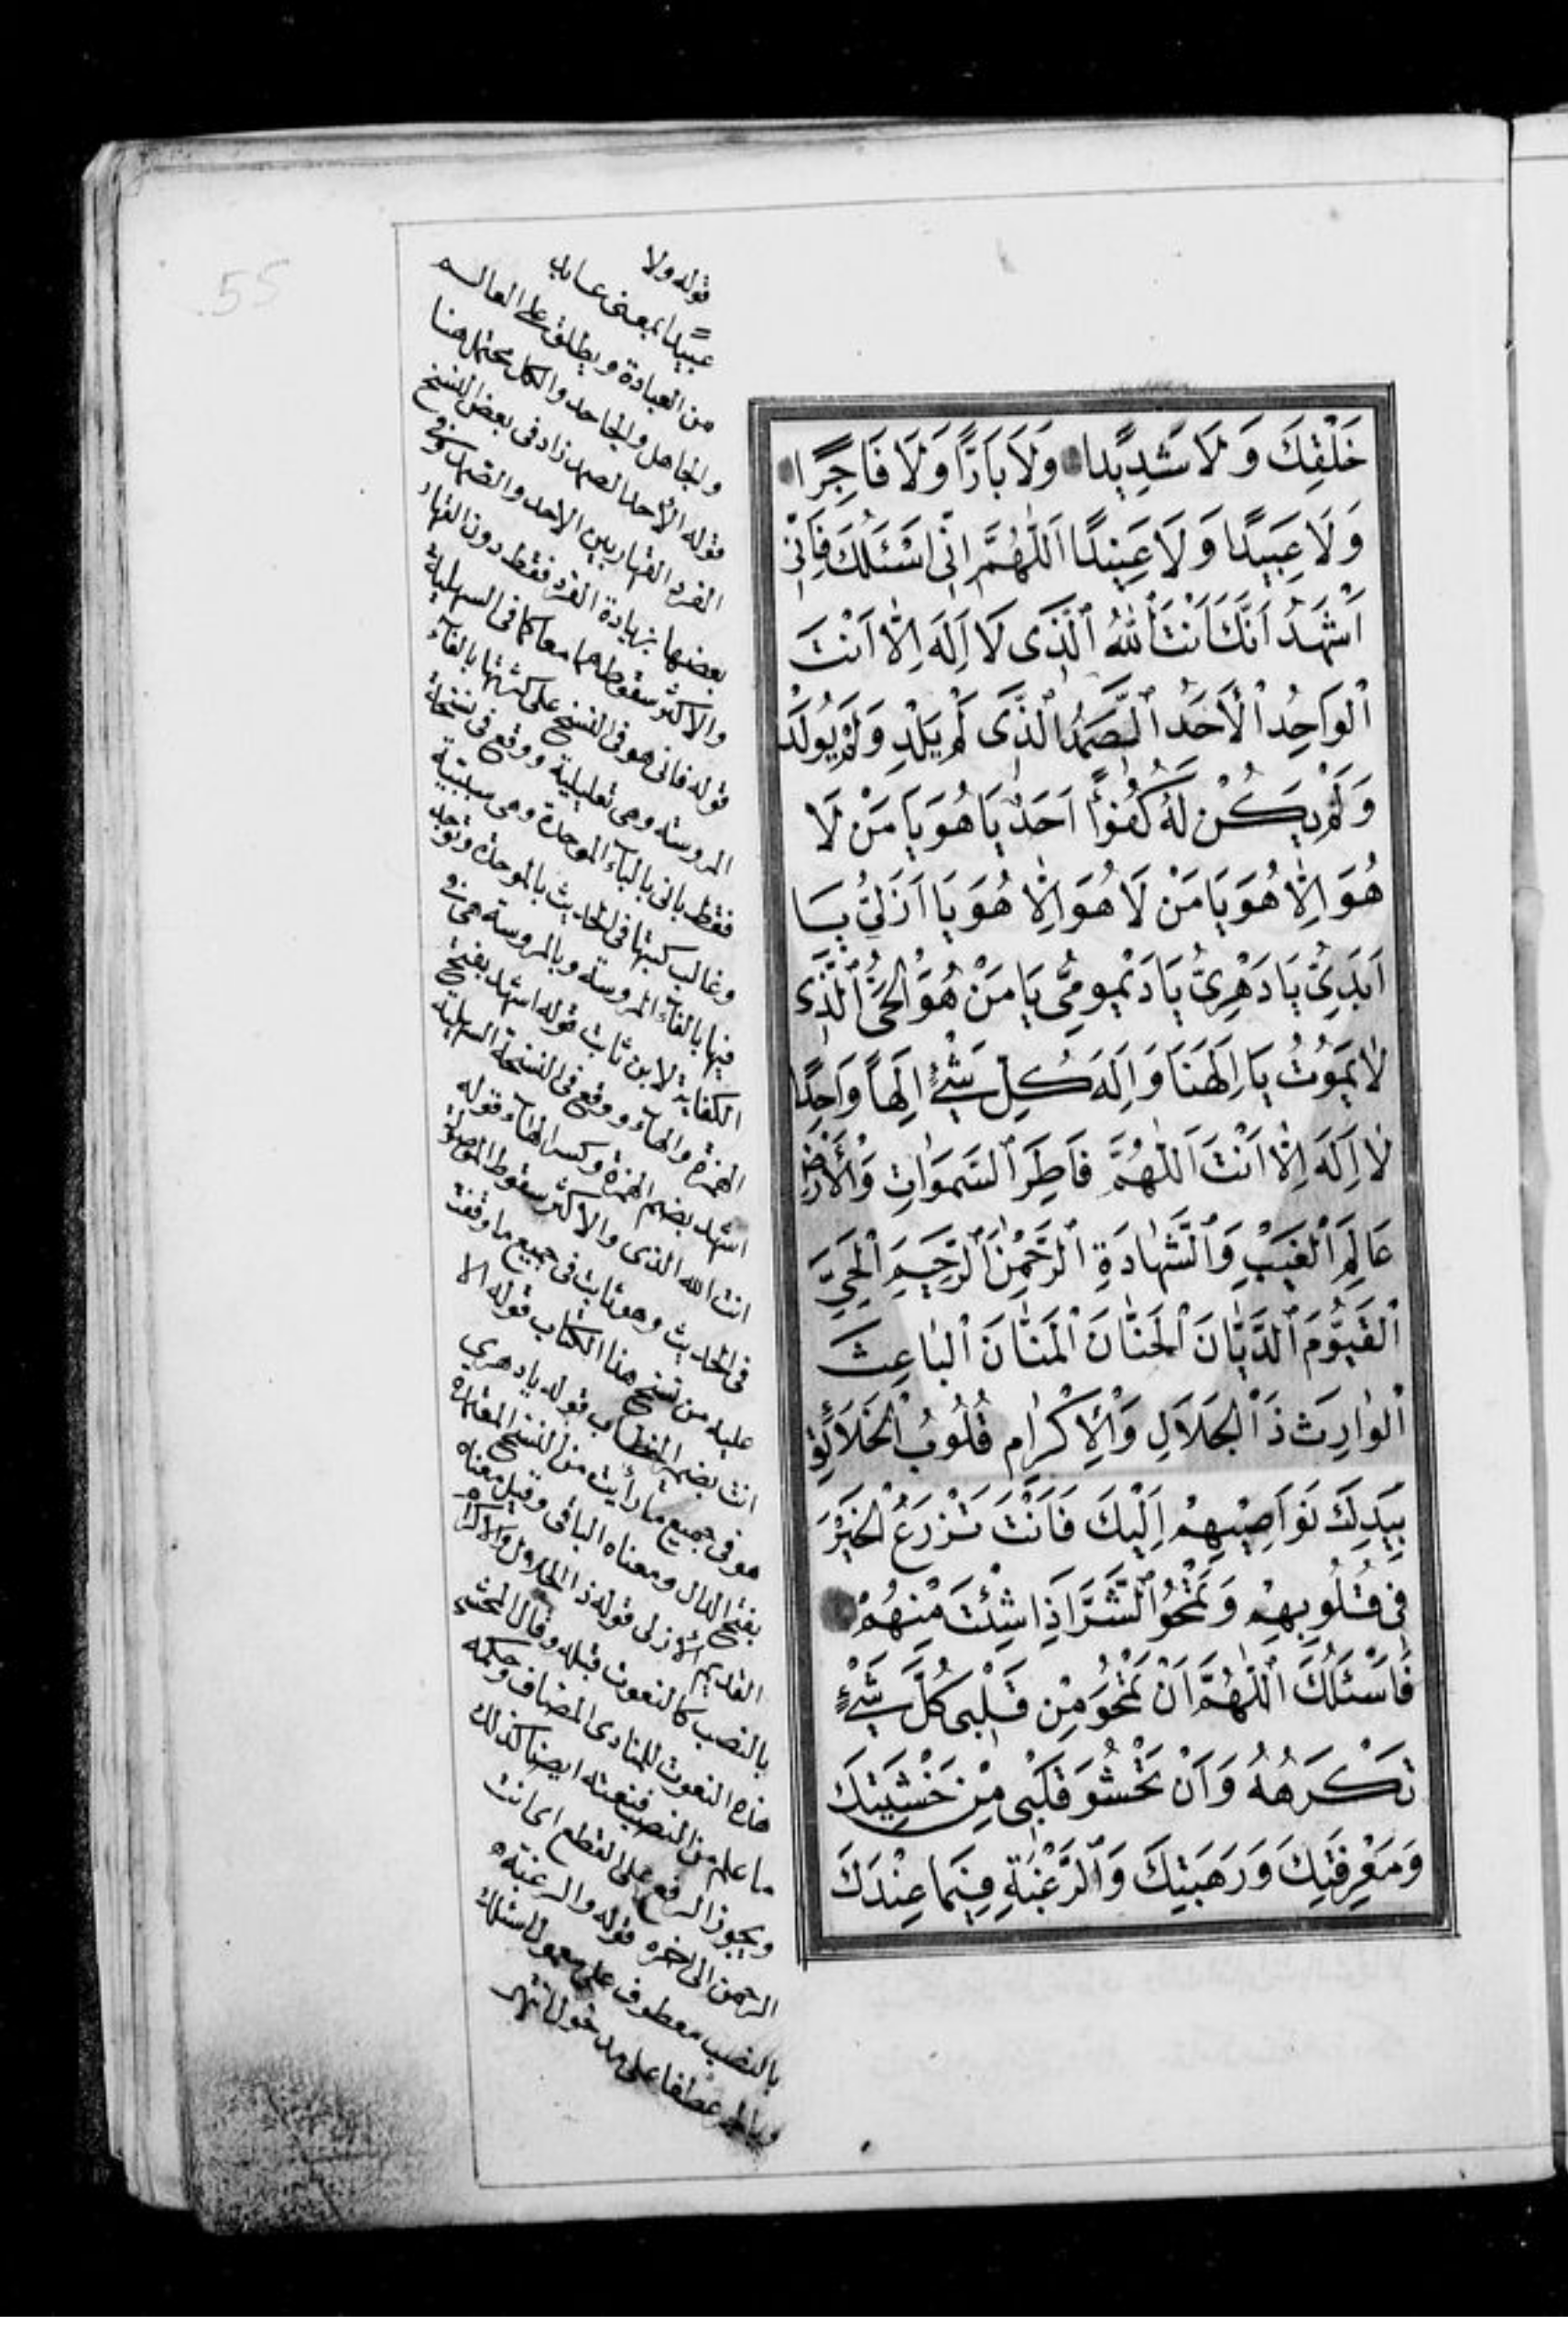 خَلْقِكَ وَلَا شَدِيدًا وَلَا بَارًّا وَلَا فَاجِرًا
وَلَا عَبِيدًا وَلَا عَنِيدًا اَللّٰهُمَّ اِنِّى اَسْئَلُكَ فَاِنِّى
اَشْهَدُ اَنَّكَ اَنْتَ اللّٰهُ الَّذِى لَا اِلَهَ اِلَّا اَنْتَ
الْوَاحِدُ الْأَحَدُ الصَّمَدُ الَّذِى لَمْ يَلِدْ وَلَمْ يُولَدْ
وَلَمْ يَكُنْ لَهُ كُفُوًا اَحَدٌ يَا هُوَ يَا مَنْ لَا
هُوَ اِلَّا هُوَ يَا مَنْ لَا هُوَ اِلَّا هُوَ يَا اَزَلِىُّ يَا
اَبَدِىُّ يَا دَهْرِىُّ يَا دَيْمُومِىُّ يَا مَنْ هُوَ الْحَىُّ الَّذِى
لَا يَمُوتُ يَا اِلَهَنَا وَاِلَهَ كُلِّ شَىْءٍ اِلَهًا وَاحِدًا
لَا اِلَهَ اِلَّا اَنْتَ اَللّٰهُمَّ فَاطِرَ السَّمَوَاتِ وَالْأَرْضِ
عَالِمَ الْغَيْبِ وَالشَّهَادَةِ الرَّحْمٰنَ الرَّحِيمَ الْحَىَّ
الْقَيُّومَ الدَّيَّانَ الْحَنَّانَ الْمَنَّانَ الْبَاعِثَ
الْوَارِثَ ذَا الْجَلَالِ وَالْإِكْرَامِ قُلُوبُ الْخَلَائِقِ
بِيَدِكَ نَوَاصِيهِمْ اِلَيْكَ فَاَنْتَ تَزْرَعُ الْخَيْرَ
فِى قُلُوبِهِمْ وَتَمْحُو الشَّرَّ اِذَا شِئْتَ مِنْهُمْ
فَاَسْئَلُكَ اللّٰهُمَّ اَنْ تَمْحُوَ مِنْ قَلْبِى كُلَّ شَىْءٍ
تَكْرَهُهُ وَاَنْ تَحْشُوَ قَلْبِى مِنْ خَشْيَتِكَ
وَمَعْرِفَتِكَ وَرَهْبَتِكَ وَالرَّغْبَةِ فِيمَا عِنْدَكَ
قوله ولا
عبيدا بمعنى عابد
من العبادة ويطلق على العالم
والجاهل والجاحد والكل محتمل هنا
قوله الأحد الصمد زاد فى بعض النسخ
الفرد القهار بين الاحد والصمد وفى
بعضها بزيادة الفرد فقط دون القهار
والاكثر سقوطهما معا كما فى السهلية
قوله فانى هو فى النسخ على كثرتها بالفاء
المروسة وهى تعليلية ووقع فى نسخة
فقط بانى بالباء الموحدة وهى سببية
وغالب كتبها فى الحديث بالموحدة وتوجد
فيها بالفاء المروسة وبالمروسة هى فى
الكفاية لابن ثابت قوله اشهد بفتح
الهمزة والهاء ووقع فى النسخة السهلية
اشهد بضم الهمزة وكسر الهاء قوله
انت الله الذى والاكثر سقوط الموصول
فى الحديث وهو ثابت فى جميع ما وقفت
عليه من نسخ هذا الكتاب قوله الا
انت بضمير الخطاب قوله يا دهري
هو فى جميع ما رأيت من النسخ المعتمدة
بفتح الدال ومعناه الباقى وقيل معناه
القديم الازلى قوله ذا الجلال والاكرام
بالنصب كالنعوت قبله وقال المحشى
هذه النعوت للمنادى المضاف وحكمه
ما علم من النصب فنعته ايضا كذلك
ويجوز الرفع على القطع اى انت
الرحمن الى اخره قوله والرغبة
بالنصب معطوف على معمول اسئلك
وبالجر عطفا على مدخول
55